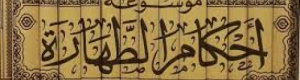 موسوعة
أحكام الطهارة